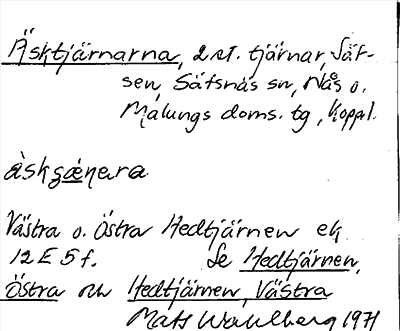 Äsktjärnarna, 2 st. tjärnar, Säf-
sen, Säfsnäs sn, Nås o.
Malungs doms. tg, Koppl.
àskgæ̨nara
Västra o. Östra Hedtjärnen ek
12 E 5 f. Se Hedtjärnen,
Östra och Hedtjärnen, Västra
Mats Wahlberg 1971